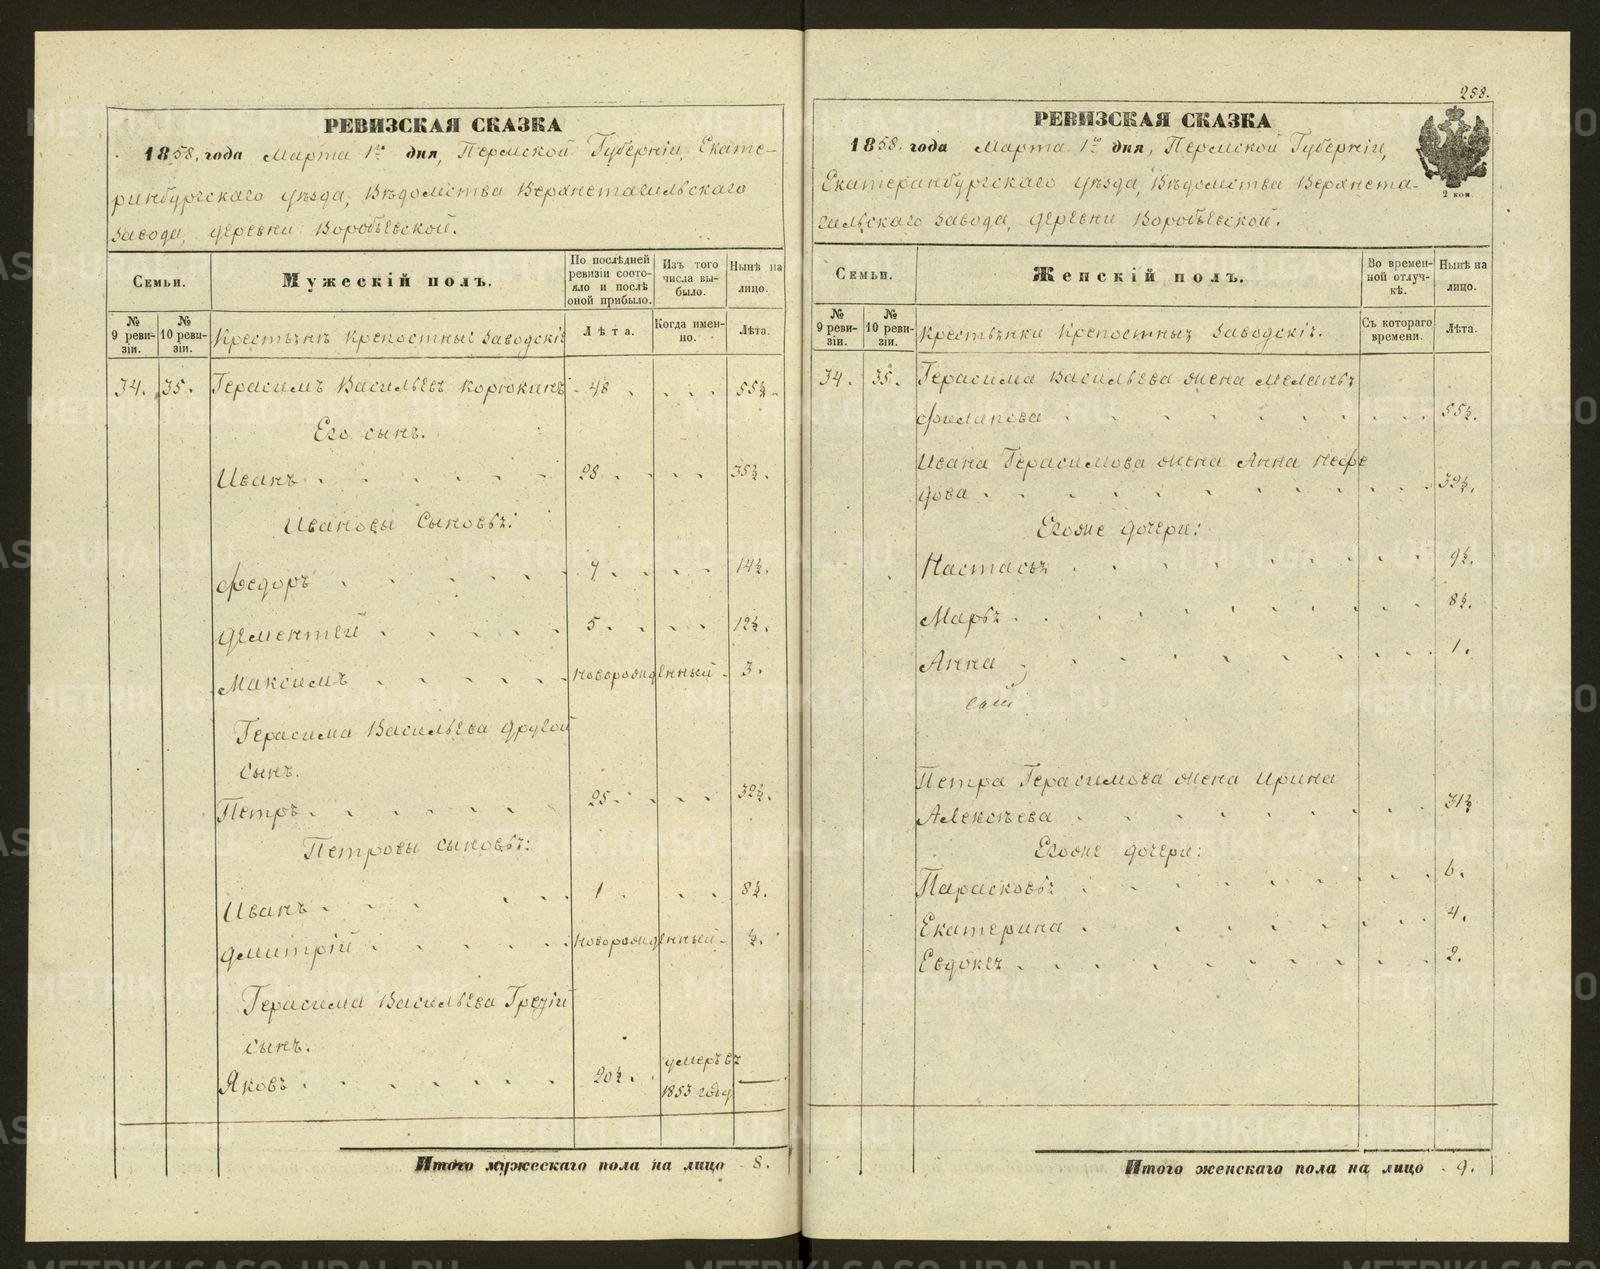 РЕВИЗСКАЯ СКАЗКА
1858 года Марта 1го дня, Пермской Губерніи, Екате-
ринбургскаго уѣзда, Вѣдомства Верхнетагильскаго
завода, деревни Воробьевской.
Семьи.
Мужескій полъ.
По послѣдней ревизіи состо-яло и послѣ оной прибыло.
Изъ того числа вы-было.
Нынѣ на лицо.
№ 9 реви-зіи.
№ 10 реви-зіи.
Крестьянъ Крепостныхъ заводскихъ
Лѣта.
Когда имен-но.
Лѣта.
34. 35. Герасимъ Васильевъ Корюкинъ 48 55½
Его сынъ.
Иванъ 28 35½.
Ивановы Сыновья:
Федоръ 7 14½.
Дементей 5. 12½.
Максимъ новорожденный 3.
Герасима Васильева другой
сынъ.
Петръ 25. 32½.
Петровы сыновья:
Иванъ 1 8½.
Дмитрій новорожденный ½.
Герасима Васильева Третій
сынъ.
Яковъ 20½. умеръ въ
1853 году —
Итого мужескаго пола на лицо 8.
258.
РЕВИЗСКАЯ СКАЗКА
1858 года Марта 1го дня, Пермской Губерніи,
Екатеринбургскаго уѣзда, Вѣдомства Верхнета-
гильскаго завода, деревни Воробьевской.
2 коп.
Семьи.
Женскій полъ.
Во времен-ной отлуч-кѣ.
Нынѣ на лицо.
№ 9 реви-зіи.
№ 10 реви-зіи.
Крестьянки Крепостныя заводскія.
Съ котораго времени.
Лѣта.
34. 35. Герасима Васильева жена Меланья
Филипова 55½.
Ивана Герасимова жена Анна Нефе
дова 32½.
Егоже дочери:
Настасья 9½.
Марья 8½.
Анна 1.
Петра Герасимова жена Ирина
Алексѣева 31½
Егоже дочери:
Парасковья 6.
Екатерина 4.
Евдокея 2.
Итого женскаго пола на лицо 9.
METRIKI.GASO-URAL.RU